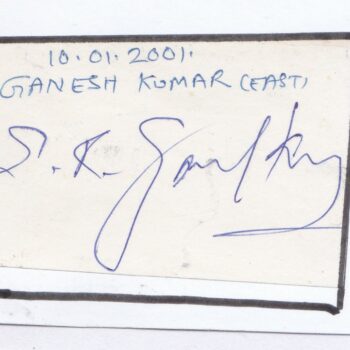 10.01.2001.
GANESH KUMAR (EAST)
S. K.